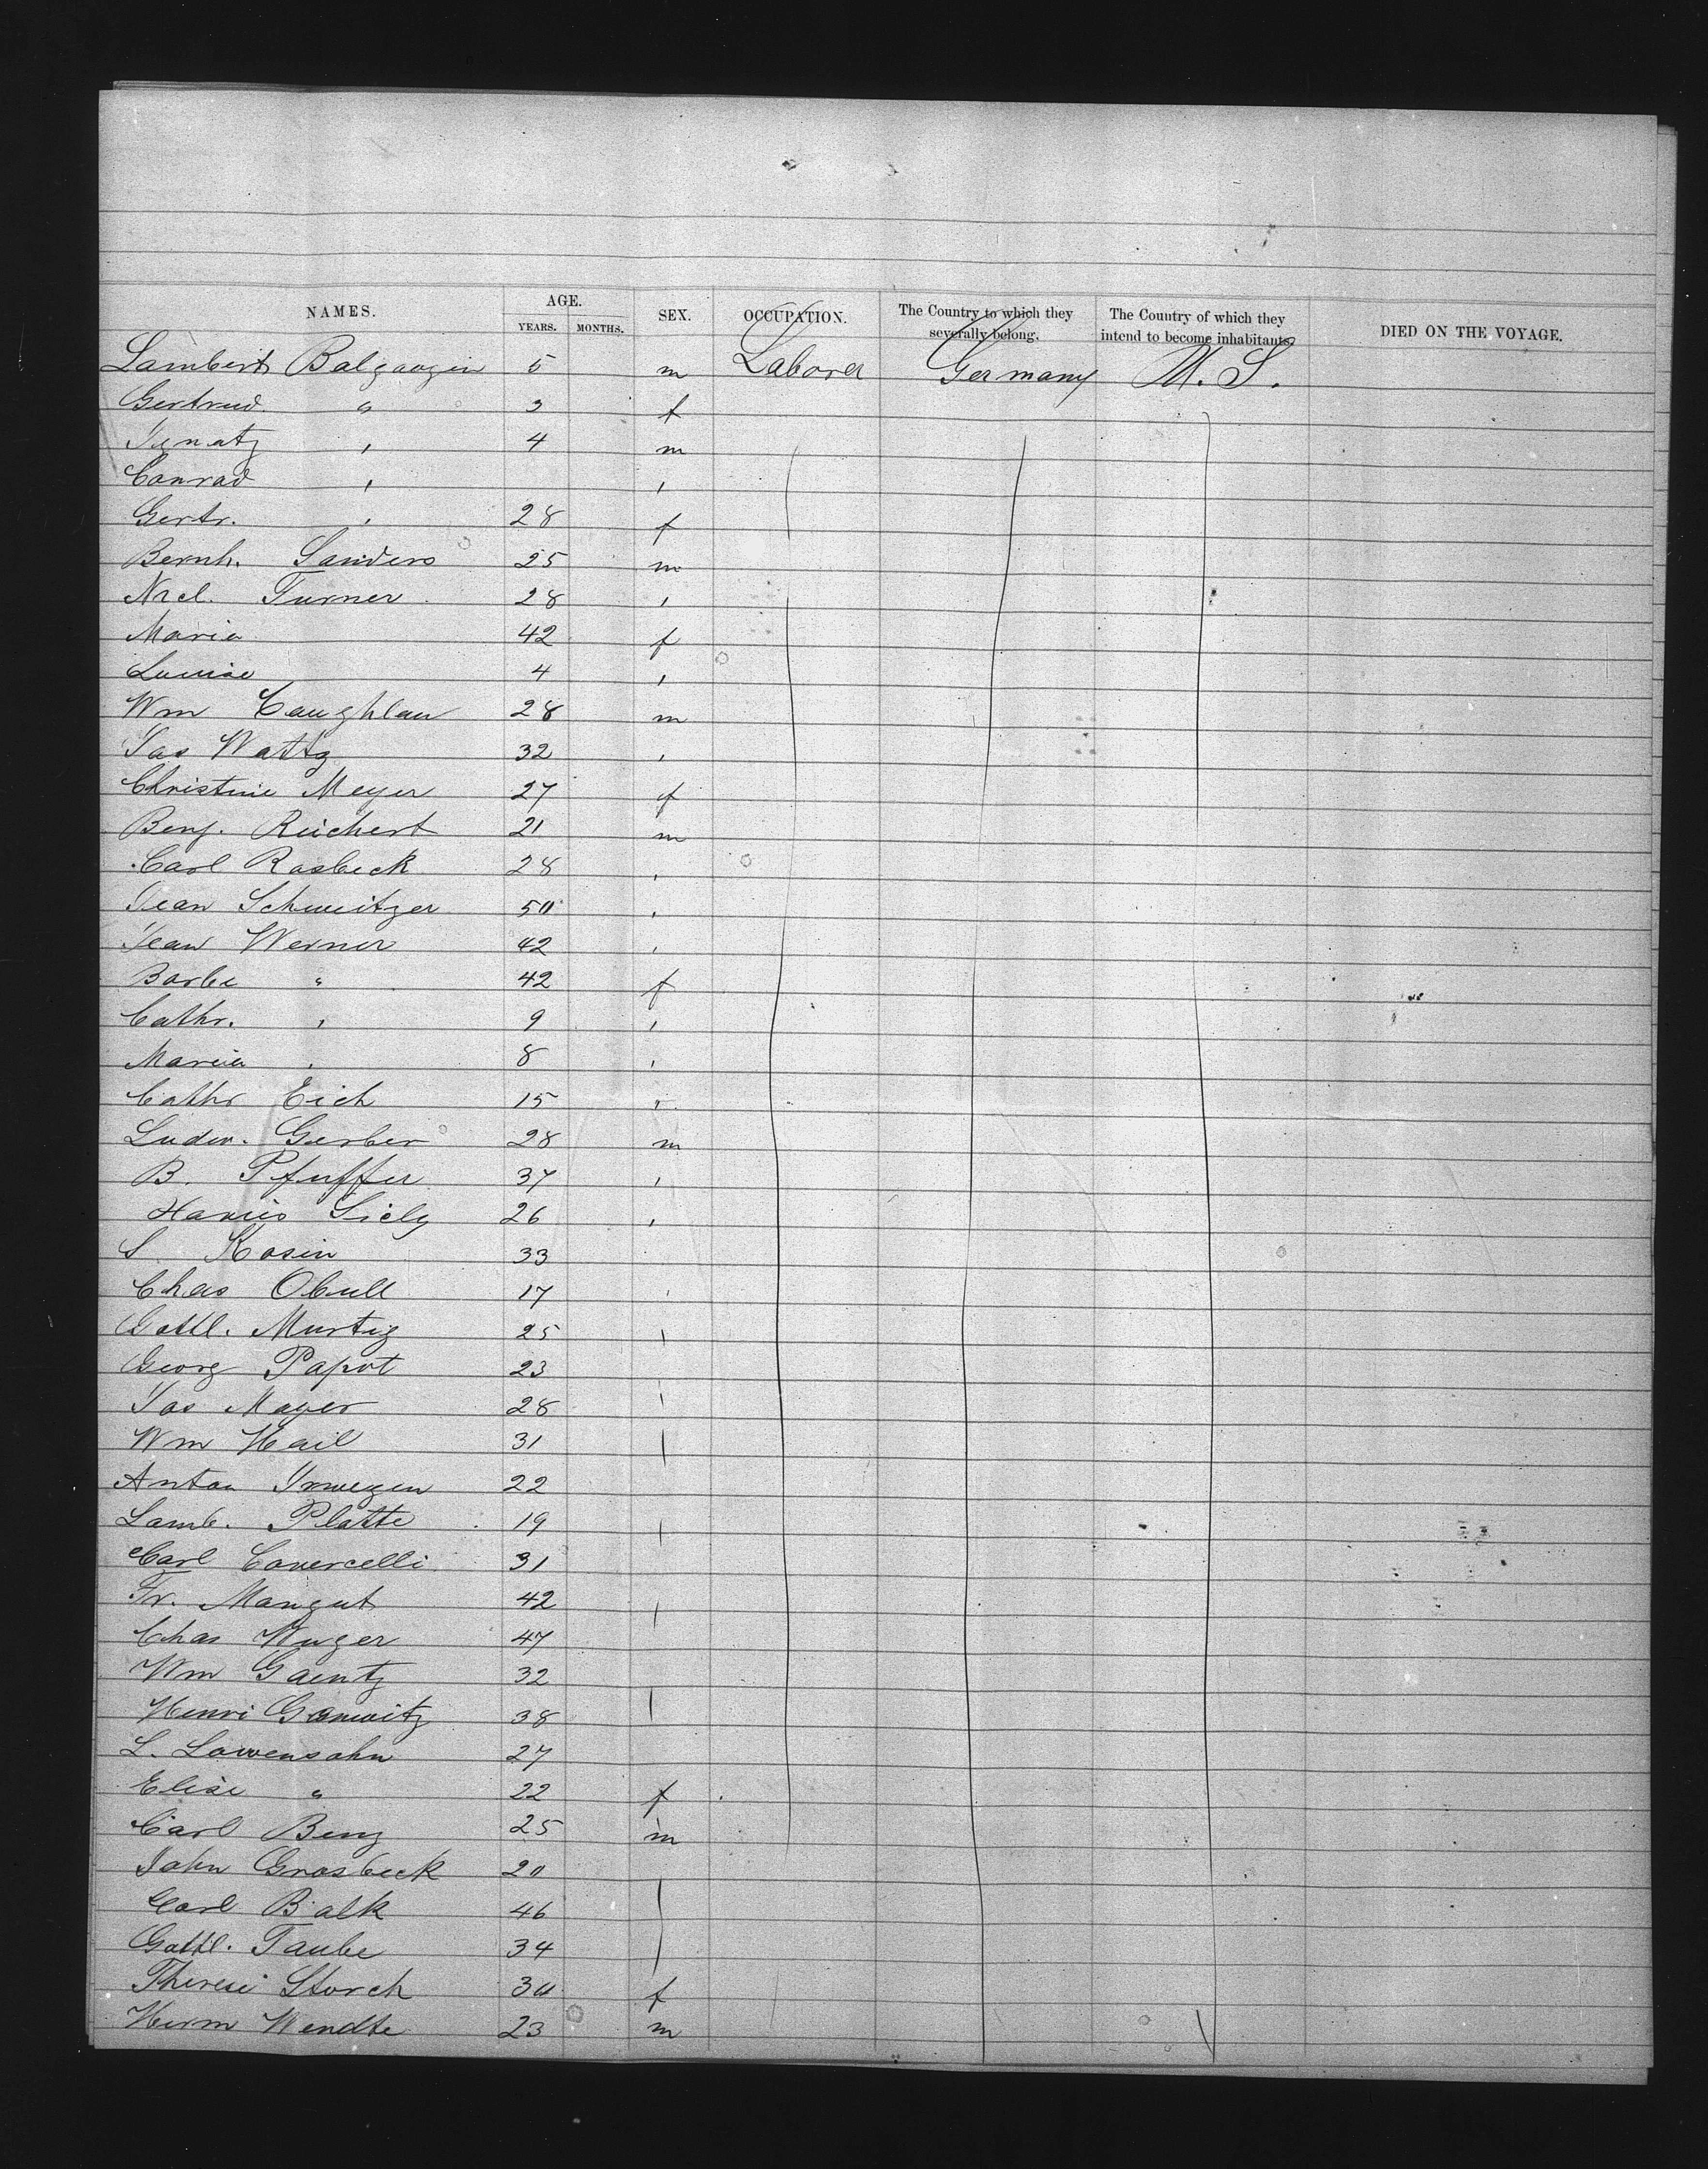 NAMES. AGE. SEX. OCCUPATION. The Country to which they severally belong. The Country of which they intend to become inhabitants. DIED ON THE VOYAGE.
YEARS. MONTHS.
Lambert 5 m Laborer Germany U. S.
Gertrud " 3 f
Ignatz " 4 m
Conrad " "
Gertr. " 28 f
Bernh. Sanders 25 m
Turner 28 "
Maria 42 f
Louise 4 "
Wm Caughlan 28 m
Jas Wattz 32 "
Christine Meyer 27 f
Benj. Reichert 21 m
Carl Rasbeck 28 "
Jean Schweitzer 50 "
Jean Werner 42 "
Barbe " 42 f
Cathr. " 9 "
Maria " 8 "
Cathr Eich 15 "
Ludw. Gerber 28 m
B. Pfuffer 37 "
26 "
S Kosin 33
Chas Obull 17
Gottl. Murtig 25
Georg Papot 23
Jos Mayer 28
Wm Hail 31
Anton 22
Lamb. Platte 19
Carl 31
Fr. Mangut 42
Chas 47
Wm Gaentz 32
Henri 38
L. Lowensohn 27
Elise " 22 f
Carl Benz 25 m
John Grosbeck 20
Carl Balk 46
Gottl. Taube 34
Therese Storch 30 f
Herm Wendte 23 m